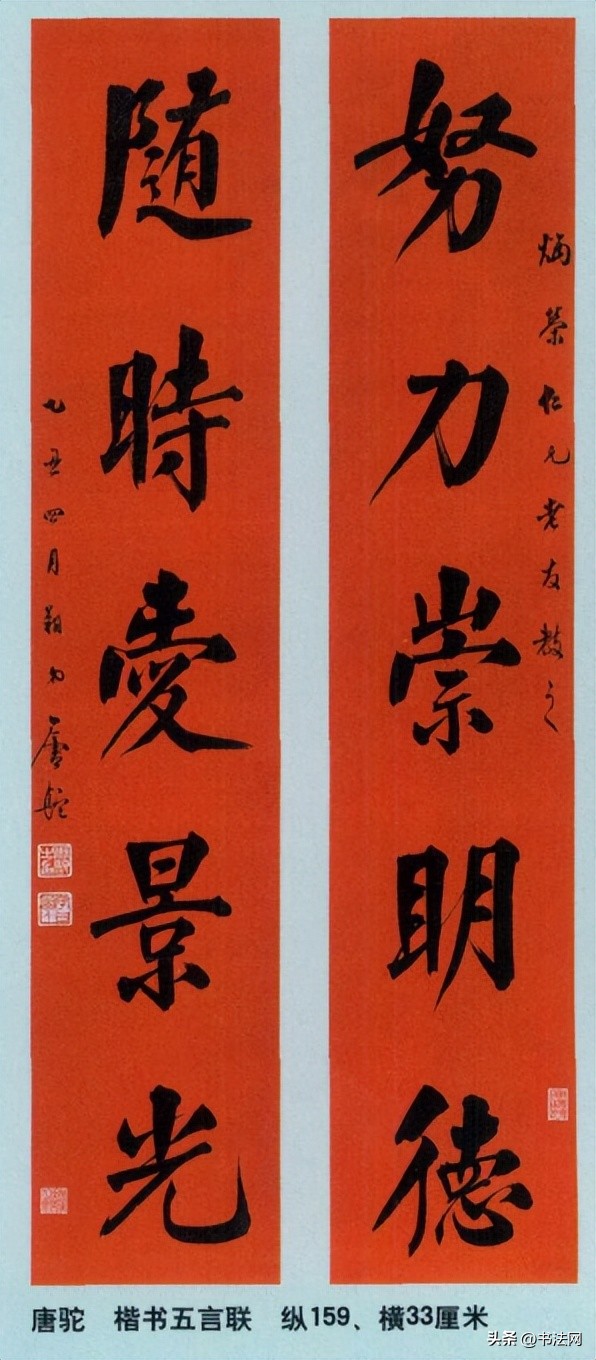 努力崇明德
炳榮仁兄老友教之
随時愛景光
乙丑四月
唐駝
唐驼 楷书五言联 纵159、横33厘米
头条 @书法网